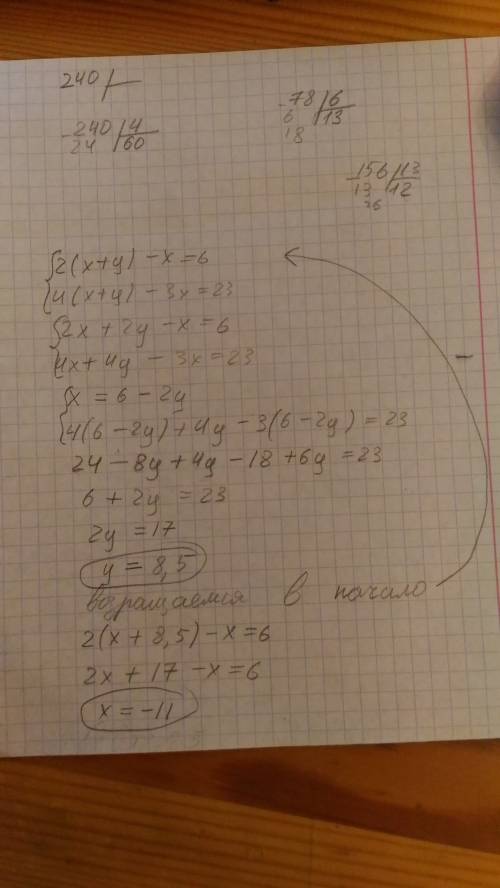 240
-240 | 4
24 | 60
-78 | 6
6 | 13
18
-156 | 13
13 | 12
26
{2(x+y) -x=6
{4(x+y) -3x=23
{2x+2y-x=6
{4x+4y-3x=23
{x = 6-2y
{4(6-2y)+4y-3(6-2y)=23
24-8y+4y-18+6y=23
6+2y=23
2y=17
y=8,5
возращаемся в начало
2(x+8,5)-x=6
2x+17-x=6
x=-11